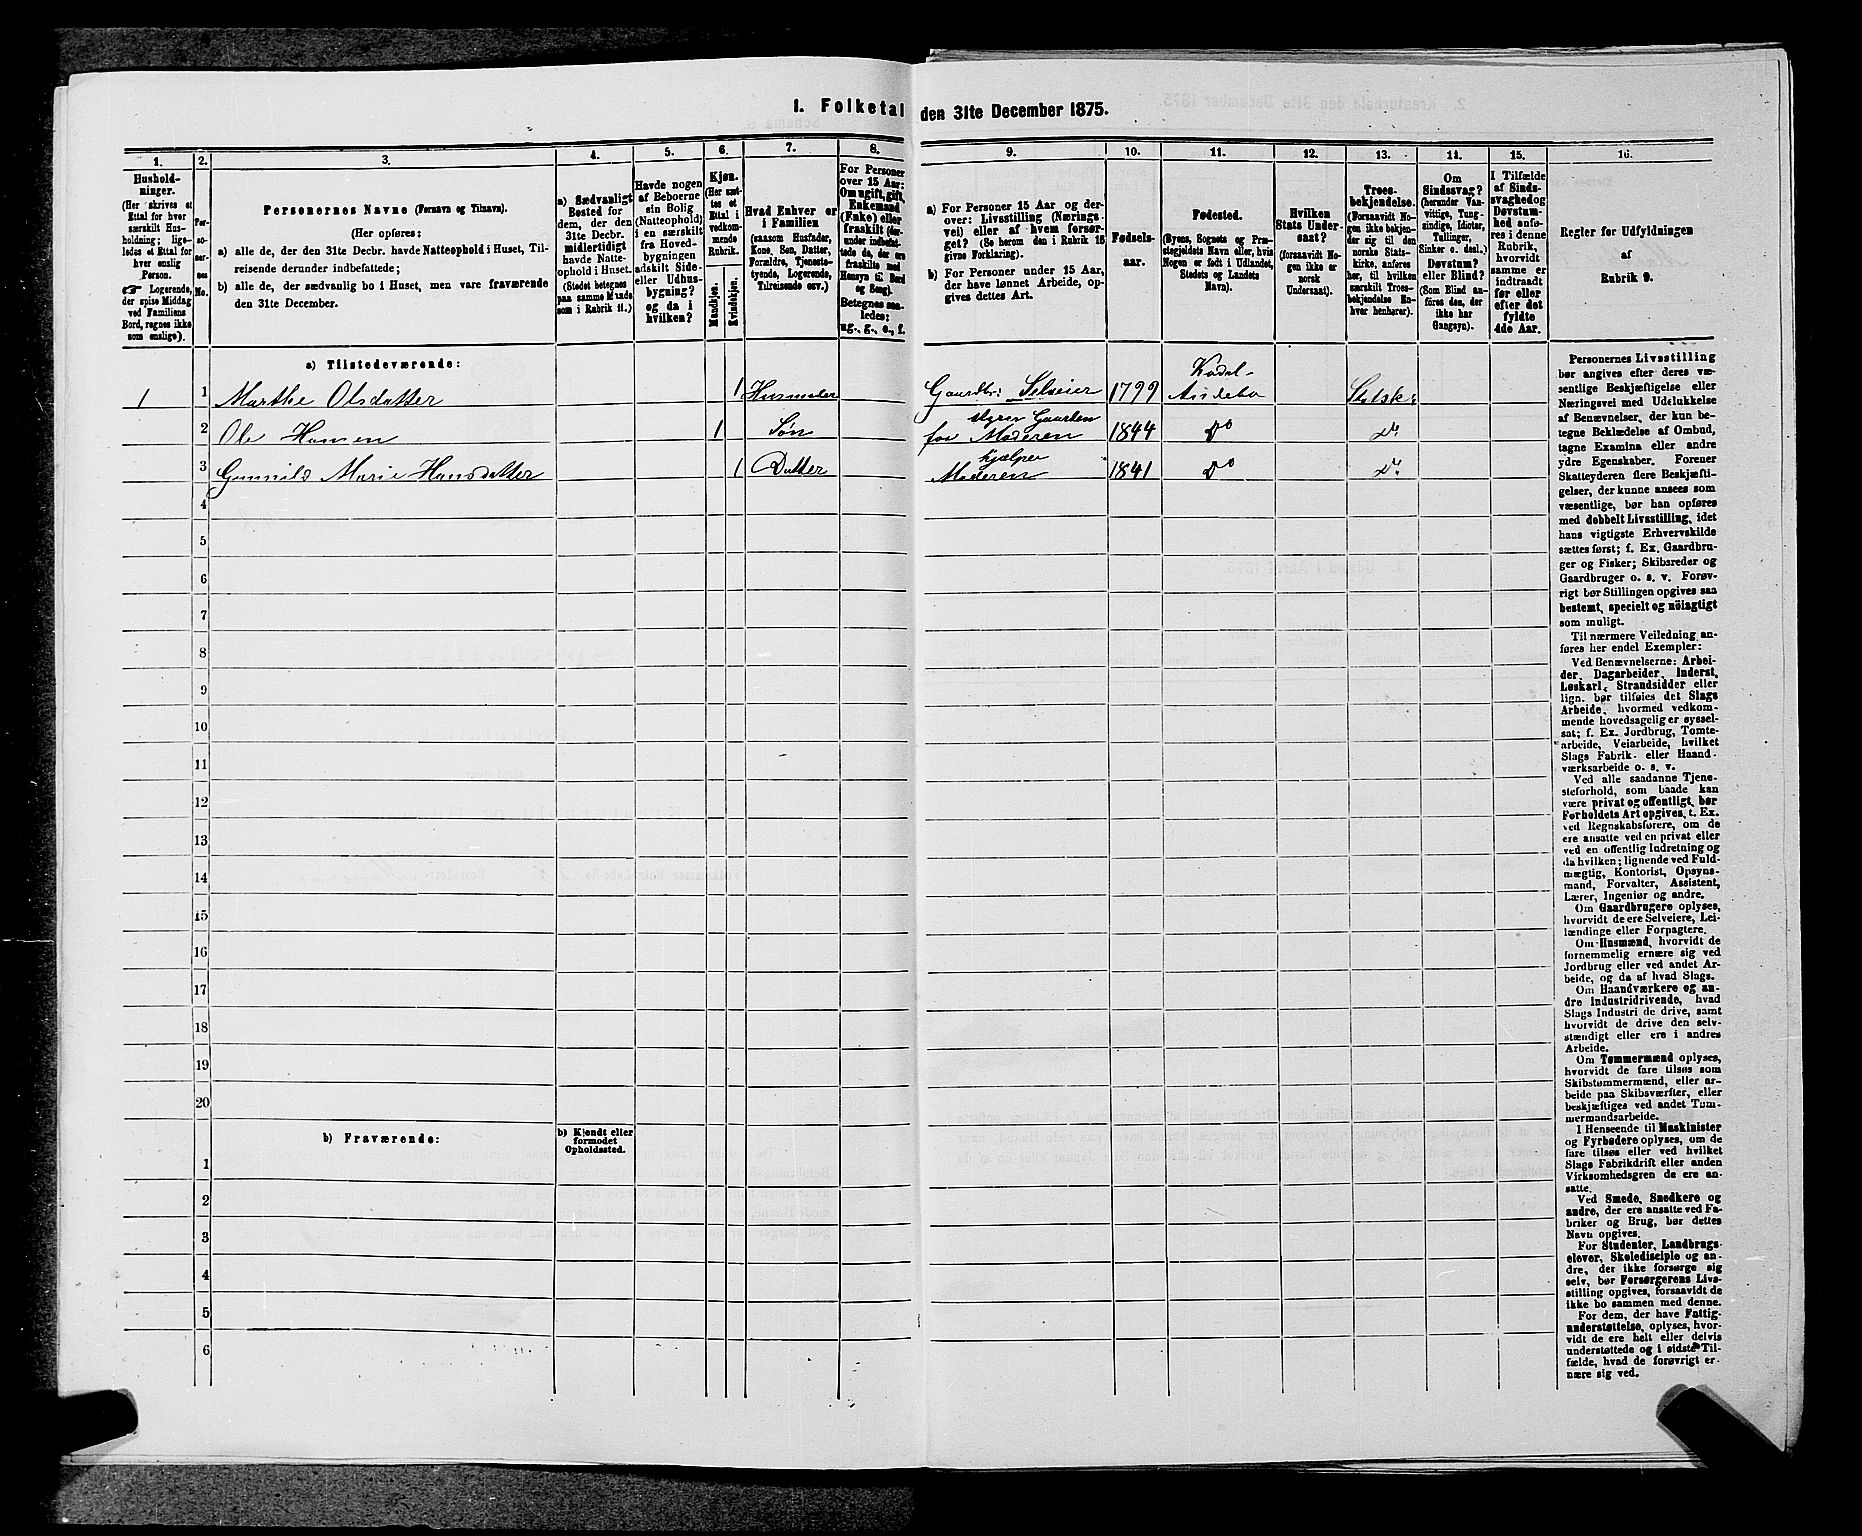 1. Folketal den 31te December 1875.
1.
2.
3.
4.
5.
6.
7.
8.
9.
10.
11.
12.
13.
14.
15.
16.
Hushold-
ninger.
(Her skrives et
Ettal for hver
særskilt Hus-
holdning; lige-
ledes et Ettal for
hver enslig
Person.
☛ Logerende,
der spise Middag
ved Familiens
Bord, regnes ikke
som enslige).
Per-
so-
ner-
nes
No.
Personernes Navne (Fornavn og Tilnavn).
(Her opføres:
a) alle de, der den 31te Decbr. havde Natteophold i Huset, Til-
reisende derunder indbefattede;
b) alle de, der sædvanlig bo i Huset, men vare fraværende
den 31te December.
a) Sædvanligt
Bosted for
dem, der den
31te Decbr.
midlertidigt
havde Natte-
ophold i Huset.
(Stedet betegnes
paa samme Maade
som i Rubrik 11.)
Havde nogen
af Beboerne
sin Bolig
(Natteophold)
i en særskilt
fra Hoved-
bygningen
adskilt Side-
eller Udhus-
bygning?
og da i
hvilken?
Kjøn.
(Her sæt-
tes et
Ettal i
vedkom-
mende
Rubrik.
Mandkjøn.
Kvindekjøn.
Hvad Enhver er
i Familien
(saasom Husfader,
Kone, Søn, Datter,
Forældre, Tjeneste-
tyende, Logerende,
Tilreisende osv.)
For Personer
over 15 Aar:
Om ugift, gift,
Enkemand
(Enke) eller
fraskilt (der-
under indbefat-
tede de, der ere
fraskilte med
Hensyn til Bord
og Seng).
Betegnes saa-
ledes:
ug., g., e., f.
a) For Personer 15 Aar og der-
over: Livsstilling (Nærings-
vei) eller af hvem forsør-
get? (Se herom den i Rubrik 16
givne Forklaring).
b) For Personer under 15 Aar,
der have lønnet Arbeide, op-
gives dettes Art.
Fødsels-
aar.
Fødested.
(Byens, Sognets og Præ-
stegjeldets Navn eller, hvis
Nogen er født i Udlandet,
Stedets og Landets
Navn).
Hvilken
Stats Under-
saat?
(forsaavidt No-
gen ikke er
norsk
Undersaat).
Troes-
bekjendelse.
(Forsaavidt No-
gen ikke bekjen-
der sig til den
norske Stats-
kirke, anføres
her, til hvilken
særskilt Troes-
bekjendelse En-
hver henhører).
Om
Sindssvag?
(herunder Van-
vittige, Tung-
sindige, Idioter,
Tullinger,
Sinker o. desl.)
Døvstum?
eller Blind?
(Som Blind an-
føres den, der
ikke har
Gangsyn).
I Tilfælde
af Sinds-
svaghed og
Døvstum-
hed anfø-
res i denne
Rubrik,
hvorvidt
samme er
indtraadt
før eller
efter det
fyldte
4de Aar.
Regler for Udfyldningen
af
Rubrik 9.
a) Tilstedeværende:
1 1 Marthe Olsdatter 1 Husmoder Gaardbr: Selveier 1799 Kodal- Andebo Statsk:
2 Ole Hansen 1 Søn Styrer Gaarden for Moderen 1844 Do Do
3 Gunnild Marie Hansdatter 1 Datter Hjælper Moderen 1841 Do Do
4
5
6
7
8
9
10
11
12
13
14
15
16
17
18
19
20
b) Fraværende:
b) Kjendt eller
formodet
Opholdssted.
1
2
3
4
5
6
Personernes Livsstilling
bør angives efter deres væ-
sentlige Beskjæftigelse eller
Næringsvei med Udelukkelse
af Benævnelser, der kun be-
tegne Beklædelse af Ombud,
tagne Examina eller andre
ydre Egenskaber. Forener
Skatteyderen flere Beskjæfti-
gelser, der kunne ansees som
væsentlige, bør han opføres
med dobbelt Livsstilling, idet
hans vigtigste Erhvervskilde
sættes først; f. Ex. Gaardbru-
ger og Fisker; Skibsreder og
Gaardbruger o. s. v. Forøv-
rigt bør Stillingen opgives saa
bestemt, specielt og nöiagtigt
som muligt.
Til nærmere Veiledning an-
føres her endel Exempler:
Ved Benævnelserne: Arbei-
der, Dagarbeider, Inderst,
Løskarl, Strandsidder eller
lign. bør tilføies det Slags
Arbeide, hvormed vedkom-
mende hovedsagelig er syssel-
sat; f. Ex. Jordbrug, Tomte-
arbeide, Veiarbeide, hvilket
Slags Fabrik- eller Haand-
værksarbeide o. s. v.
Ved alle saadanne Tjene-
steforhold, som baade kan
være privat og offentligt, bør
Forholdets Art opgives, t. Ex.
ved Regnskabsførere, om de
ere ansatte ved en privat eller
ved en offentlig Indretning og
da hvilken; lignende ved Fuld-
mægtig, Kontorist, Opsyns-
mand, Forvalter, Assistent,
Lærer, Ingeniør og andre.
Om Gaardbrugere oplyses,
hvorvidt de ere Selveiere, Lei-
lændinge eller Forpagtere.
Om Husmænd, hvorvidt de
fornemmelig ernære sig ved
Jordbrug eller ved andet Ar-
beide, og da af hvad Slags.
Om Haandværkere og an-
dre Industridrivende, hvad
Slags Industri de drive, samt
hvorvidt de drive den selv-
stændigt eller ere i andres
Arbeide.
Om Tømmermænd oplyses,
hvorvidt de fare tilsøs som
Skibstømmermænd, eller ar-
beide paa Skibsværfter, eller
beskjæftiges ved andet Tøm-
mermandsarbeide.
I Henseende til Maskinister
og Fyrbødere oplyses, om de
fare tilsøs eller ved hvilket
Slags Fabrikdrift eller anden
Virksomhedsgren de ere an-
satte.
Ved Smede, Snedkere og
andre, der ere ansatte ved Fa-
briker og Brug, bør dettes
Navn opgives.
For Studenter, Landbrugs-
elever, Skoledisciple og an-
dre, der ikke forsørge sig
selv, bør Forsørgerens Livs-
stilling opgives, forsaavidt de
ikke bo sammen med denne.
For dem, der have Fattig-
understøttelse, oplyses, hvor-
vidt de ere helt eller delvis
understøttede og i sidste Til-
fælde, hvad de forøvrigt er-
nære sig ved.